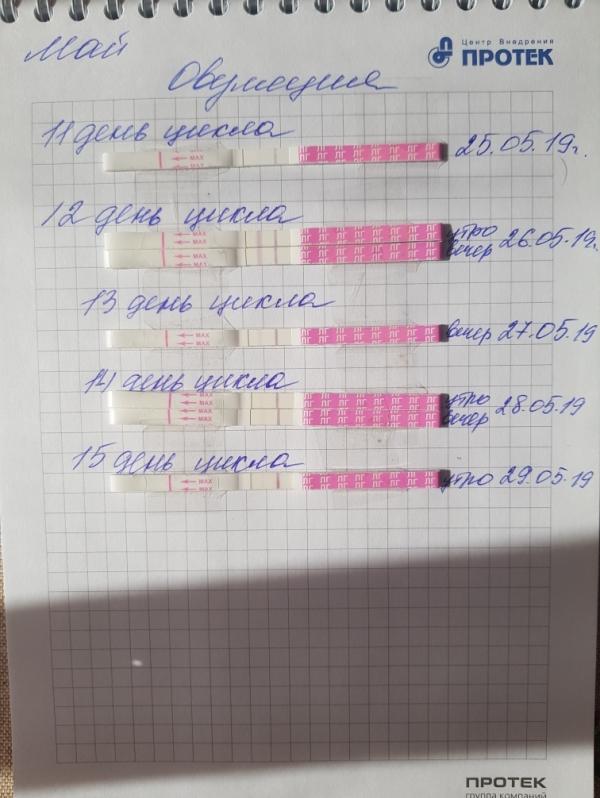 Май
Центр Внедрения
ПРОТЕК
Овуляция
11 день цикла
MAX
25.05.19г.
12 день цикла
MAX
MAX
MAX
MAX
утро 26.05.19г.
вечер
13 день цикла
MAX
MAX
вечер 27.05.19
14 день цикла
MAX
MAX
MAX
утро 28.05.19
вечер
15 день цикла
MAX
MAX
утро 29.05.19
ПРОТЕК
группа компаний